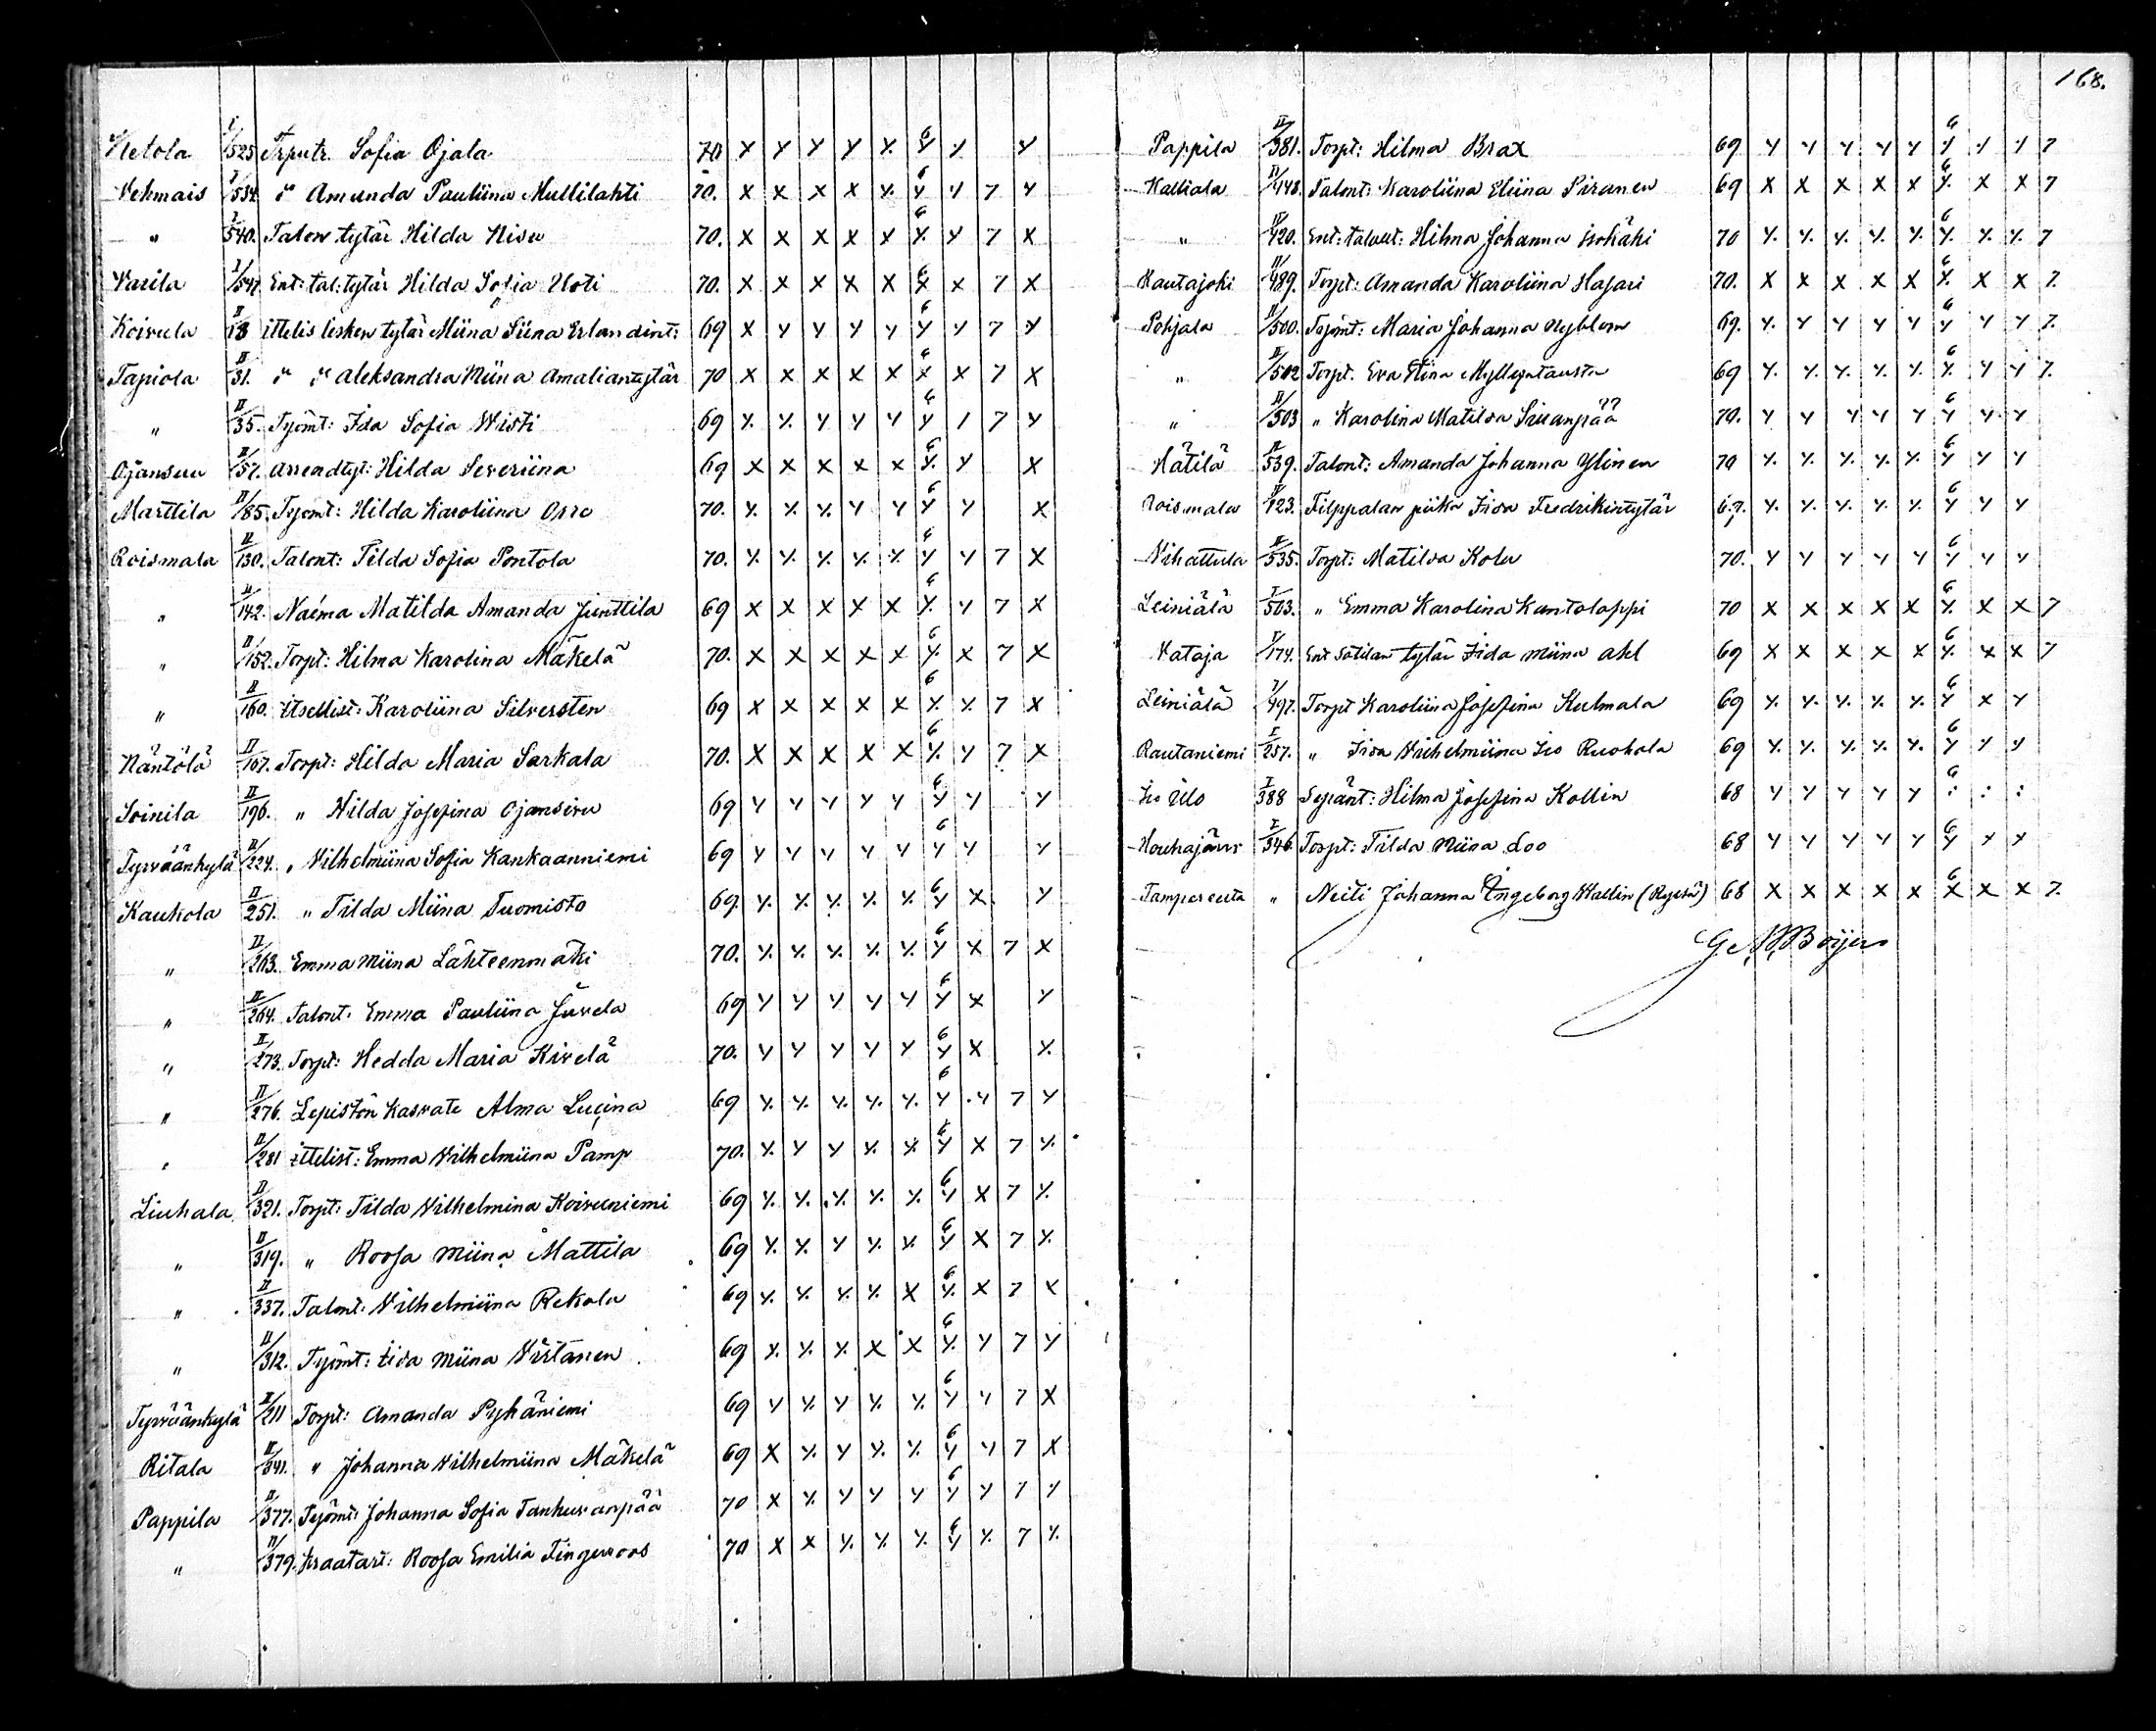 168.
Ketola I/525 Trputr. Sofia Ojala 70 x y y y x. 6 y y y
Vehmais I/534 d:o Amanda Pauliina Mullilahti 70. x x x x x. 6 y y 7 y
" I/540. Talon tytär Hilda Nisu 70. x x x x x 6 x. y 7 x
Varila I/547. Ent: tal: tytär Hilda Sofia Uoti 70. x x x x x 6 x x 7 x
Koivula II/18 ittelis lesken tytär Miina Siina Erlandint: 69 x y y y y 6 y y 7 y
Tapiola II/31. d:o d:o Aleksandra Miina Amaliantytär 70 x x x x x 6 x x 7 x
" II/35. Työmt: Ida Sofia Wisti 69 x. x. y y y 6 y 1 7 y
Ojansuu II/57. Arrendtyt: Hilda Severiina 69 x x x x x 6 x. y x
Marttila II/85. Työmt: Hilda Karoliina Osro 70. x. x. x. y y 6 y y x
Roismala II/130. Talont: Tilda Sofia Pontola 70. x. x. x. x. x. 6 y y 7 x
" II/142. Naima Matilda Amanda Junttila 69 x x x x x 6 x. y 7 x
" II/152. Torpt: Hilma Karolina Mäkelä 70. x x x x x 6 x. x 7 x
" II/160. Itsellist: Karoliina Silversten 69 x x x x x 6 x. x. 7 x
Näntölä II/167. Torpt: Hilda Maria Sarkala 70. x x x x x 6 x. y 7 x
Soinila II/196. " Hilda Josefina Ojansivu 69 y y y y y 6 y y y
Tyrväänkylä II/224. " Vilhelmiina Sofia Kankaanniemi 69 y y y y y 6 y y y
Kaukola II/251. " Tilda Miina Tuomisto 69. x. x. x. x. x. 6 y x y
" II/263. Emma Miina Lähteenmäki 70. x. x. x. x. x. 6 y x 7 x
" II/264. Talont. Emma Pauliina Juvela 69 y y y y y 6 y x y
" II/273. Torpt: Hedda Maria Kivelä 70. y y y y y 6 y x x.
" II/276. Lepistön kasvate Alma Lucina 69 x. x. x. x. x. 6 y y 7 y
" II/281 ittelist: Emma Vilhelmiina Pamp 70. x. y y x. x. 6 y x 7 x.
Liuhala II/321. Torpt: Tilda Vilhelmina Koivuniemi 69 x. x. x. x. x. 6 y x 7 x.
" II/319. " Roosa Miina Mattila 69 x. x. y x. x. 6 y x 7 x.
" II/337. Talont: Vilhelmiina Rekola 69 x. x. x. x. x 6 x. x 7 x
" II/312. Työmt: Iida Miina Virtanen 69 x. x. x. x x 6 x. y 7 y
Tyrväänkylä I/211 Torpt: Amanda Pyhäniemi 69 y x. y x. x. 6 y y 7 x
Ritala II/341. " Johanna Vilhelmiina Mäkelä 69 x x. y x. x. 6 y y 7 x
Pappila II/377. Työmt: Johanna Sofia Tanhuanpää 70 x x. y y y 6 y y 7 y
" II/379. kraatart: Roosa Emilia Fingerroos 70 x x x. x. x. 6 y x. 7 x.
Pappila II/381. Torpt: Hilma Brax 69 y y y y y 6 y y y 7
Kalliala II/448. Talont: Karoliina Eliina Piranen 69 x x x x x 6 x. x x 7
" II/420. Ent: talont: Hilma Johanna Isohäki 70 x. x. x. x. x. 6 x. x. x. 7
Kautajoki II/489. Torpt: Amanda Karoliina Hajari 70. x x x x x 6 x. x x 7.
Pohjala II/500. Työmt: Maria Johanna Nyblom 69. x. y y y y 6 y y y 7.
" II/502 Torpt. Eva Stina Myllyntausta 69 x. x. x. x. x. 6 x. y y 7.
" II/503 " Karolina Matilda Siuanpää 70. y y y y y 6 y y y
Hätilä II/539. Talont: Amanda Johanna Ylinen 70 x. x. x. x. x. 6 y y y
Roismala II/123. Filppulan piika Iida Fredrikintytär 67. x. y y y y 6 y y y
Vihattula II/535. Torpt: Matilda Kolu 70. y y y y y 6 y y y
Leiniälä I/503. " Emma Karolina Kantoloppi 70 x x x x x 6 x. x x 7
Kataja I/174. Ent sotilan tytär Iida Miina Ahl 69 x x x x x 6 x. x x 7
Leiniälä I/497. Torpt Karoliina Josefina Kulmala 69 x. x. x. x. x. 6 y x y
Rautaniemi I/257. " Iida Vilhelmiina Iso Ruohola 69 x. x. x. x. x. 6 y y y
Iso Ulo I/388 Sepänt: Hilma Josefina Kollin 68 y y y y y 6 : : :
Houhajärvi I/346. Torpt: Tilda Miina Loo 68 y y y y y 6 y y y
Tampereelta " Neiti Johanna Ingeborg Wallin 68 x x x x x 6 x x x 7.